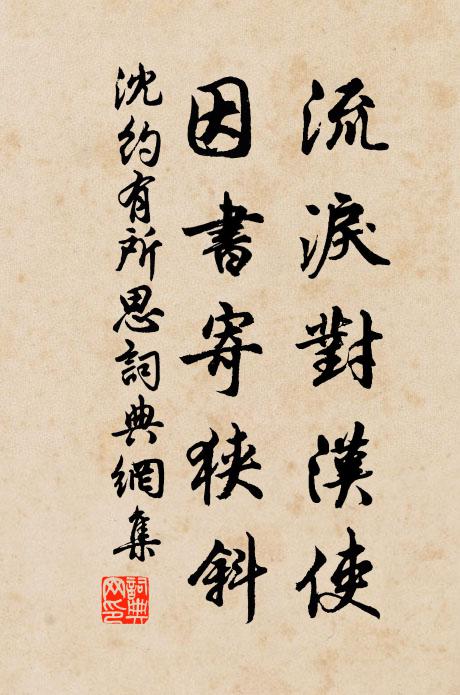 流淚對漢使
因書寄狹斜
沈約有所思詞典網集
詞典網印